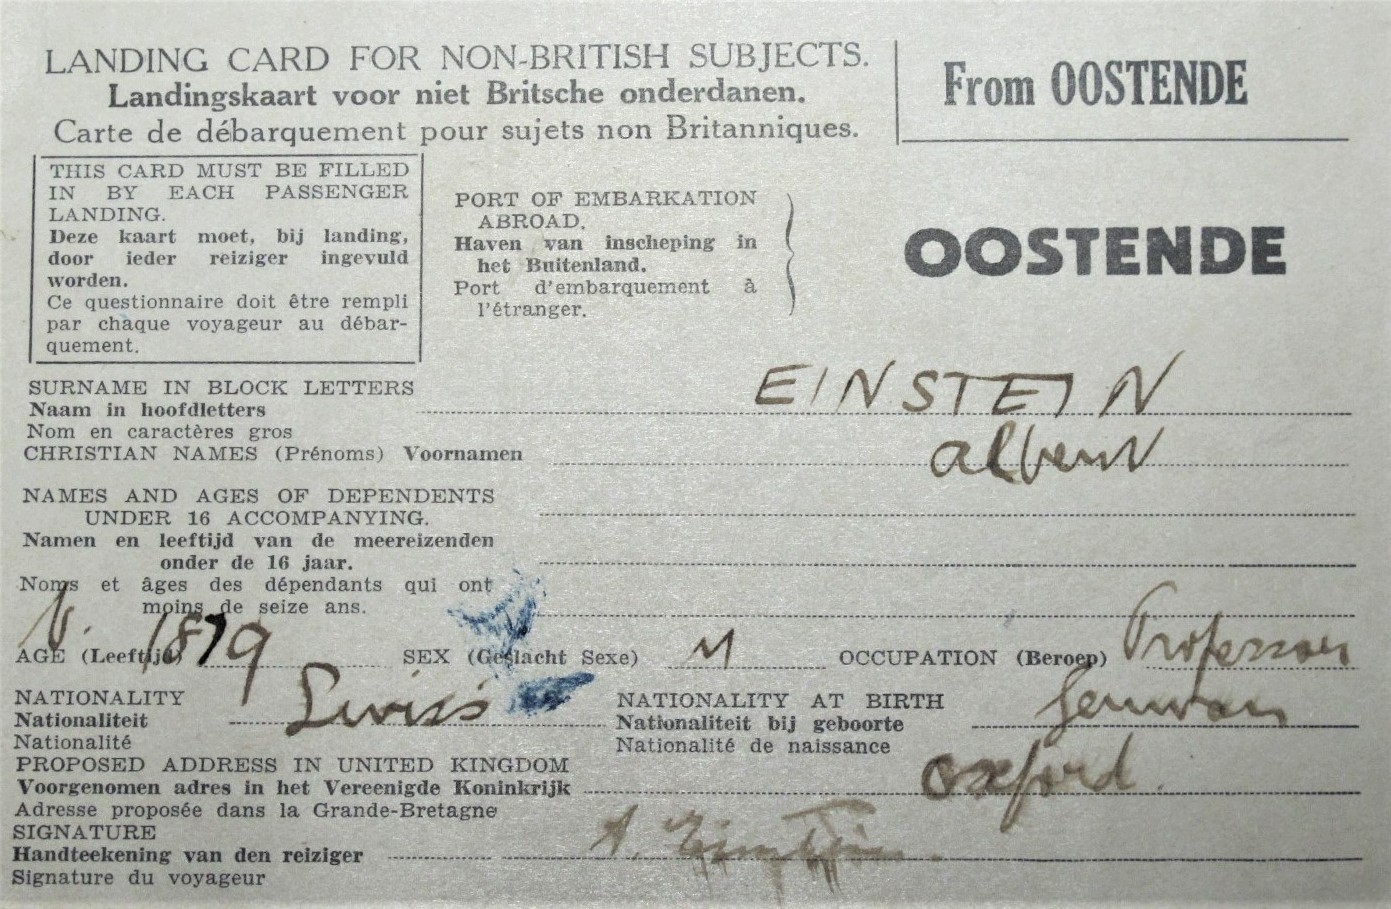 LANDING CARD FOR NON-BRITISH SUBJECTS.
Landingskaart voor niet Britsche onderdanen.
Carte de débarquement pour sujets non Britanniques.
From OOSTENDE
THIS CARD MUST BE FILLED
IN BY EACH PASSENGER
LANDING.
Deze kaart moet, bij landing,
door ieder reiziger ingevuld
worden.
Ce questionnaire doit être rempli
par chaque voyageur au débar-
quement.
PORT OF EMBARKATION
ABROAD.
Haven van inscheping in
het Buitenland.
Port d'embarquement à
l'étranger.
OOSTENDE
SURNAME IN BLOCK LETTERS
Naam in hoofdletters
Nom en caractères gros
EINSTEIN
CHRISTIAN NAMES (Prénoms) Voornamen
Albert
NAMES AND AGES OF DEPENDENTS
UNDER 16 ACCOMPANYING.
Namen en leeftijd van de meereizenden
onder de 16 jaar.
Noms et âges des dépendants qui ont
moins de seize ans.
AGE (Leeftijd) 1879 SEX (Geslacht Sexe) M OCCUPATION (Beroep) Professor
NATIONALITY
Nationaliteit
Nationalité
Swiss
NATIONALITY AT BIRTH
Nationaliteit bij geboorte
Nationalité de naissance
German
PROPOSED ADDRESS IN UNITED KINGDOM
Voorgenomen adres in het Vereenigde Koninkrijk
Adresse proposée dans la Grande-Bretagne
Oxford.
SIGNATURE
Handteekening van den reiziger
Signature du voyageur
A. Einstein.